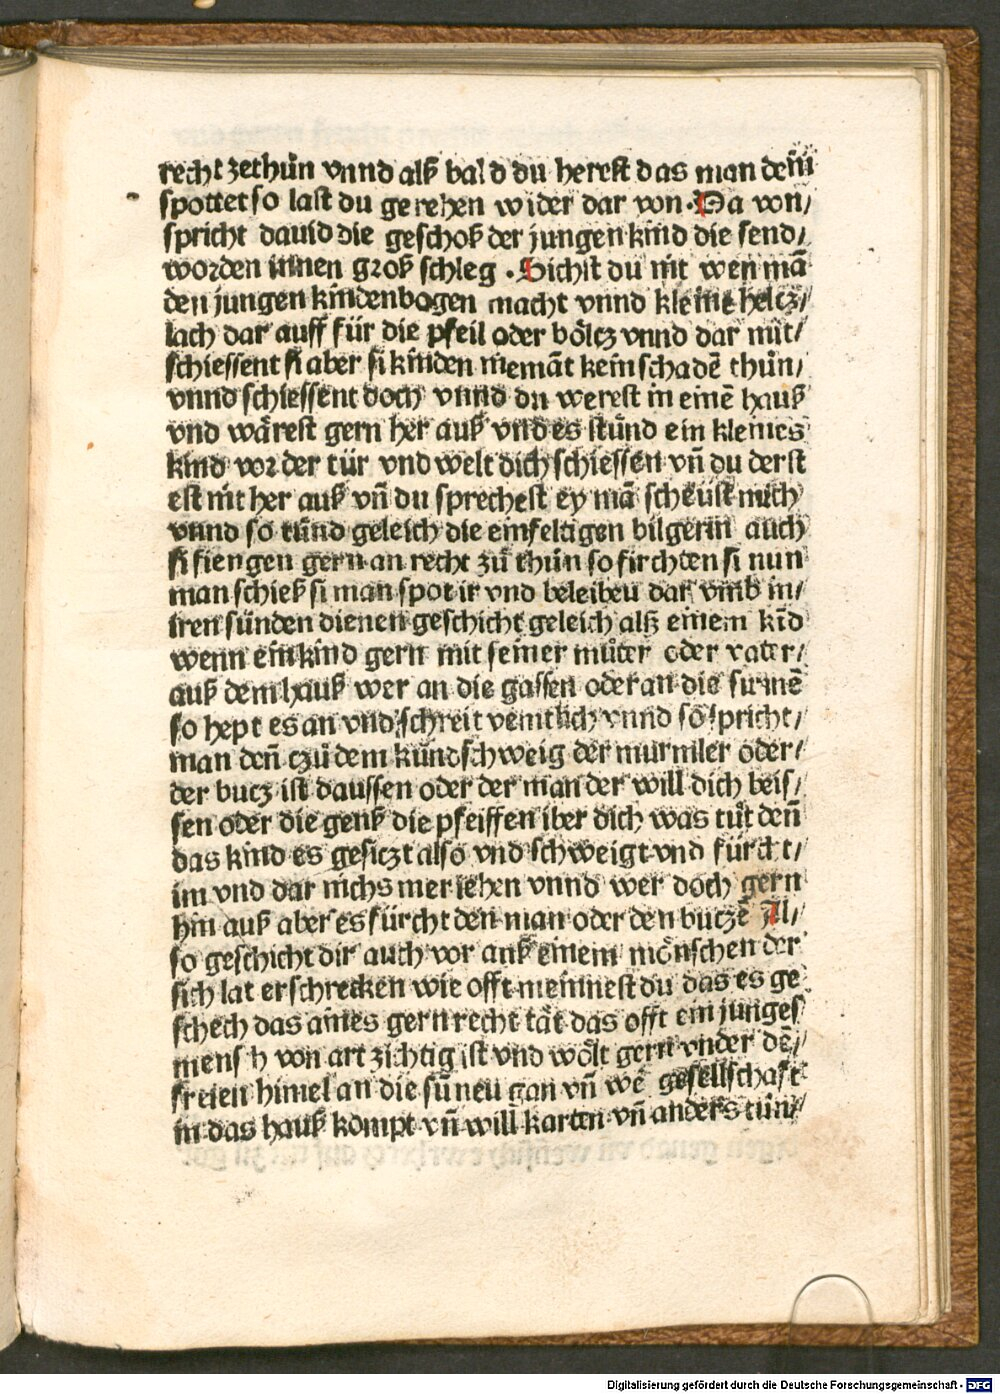 recht zethůn vnnd alß bald du herest das man dem̃
spottet so last du gerehen wider dar von. Da von/
spricht dauid die geschoß der jungen kind die send/
worden innen groß schleg. Sichst du nit wen mã
den jungen kinden bogen macht vnnd kleine helcz/
lach dar auff für die pfeil oder bölcz vnnd dar mit/
schiessent si aber si kinden niemãt kein schadẽ thůn/
vnnd schiessent doch vnnd du werest in einẽ hauß
vnd wärest gern her auß vnd es stůnd ein kleines
kind vor der tür vnd welt dich schiessen vñ du derst
est nit her auß vñ du sprechest ey mã scheust mich
vnnd so tůnd geleich die einfeltigen bilgerin auch
si fiengen gern an recht zů thůn so firchten si nun
man schieß si man spot ir vnd beleiben dar vmb in/
iren sünden dienen geschicht geleich alß einem kĩd
wenn ein kind gern mit seiner můter oder vater/
auß dem hauß wer an die gassen oder an die sunnẽ
so hept es an vnd schreit veintlich vnnd so spricht/
man deñ czů dem künd schweig der murmler oder/
der bucz ist daussen oder der man der will dich beis/
sen oder die genß die pfeiffen iber dich was tůt deñ
das kind es gesiczt also vnd schweigt vnd fürcht/
im vnd dar nichs mer iehen vnnd wer doch gern
hin auß aber es fürcht den man oder den buczẽ Al/
so geschicht dir auch vor auß einem mönschen der
sich lat erschrecken wie offt meinnest du das es ge
schech das aines gern recht tät das offt ein junges
mensch von art zichtig ist vnd wölt gern vnder dẽ/
freien himel an die sünen gan vñ wẽ gesellschaft
in das hauß kompt vñ will karten vñ anders tůn/